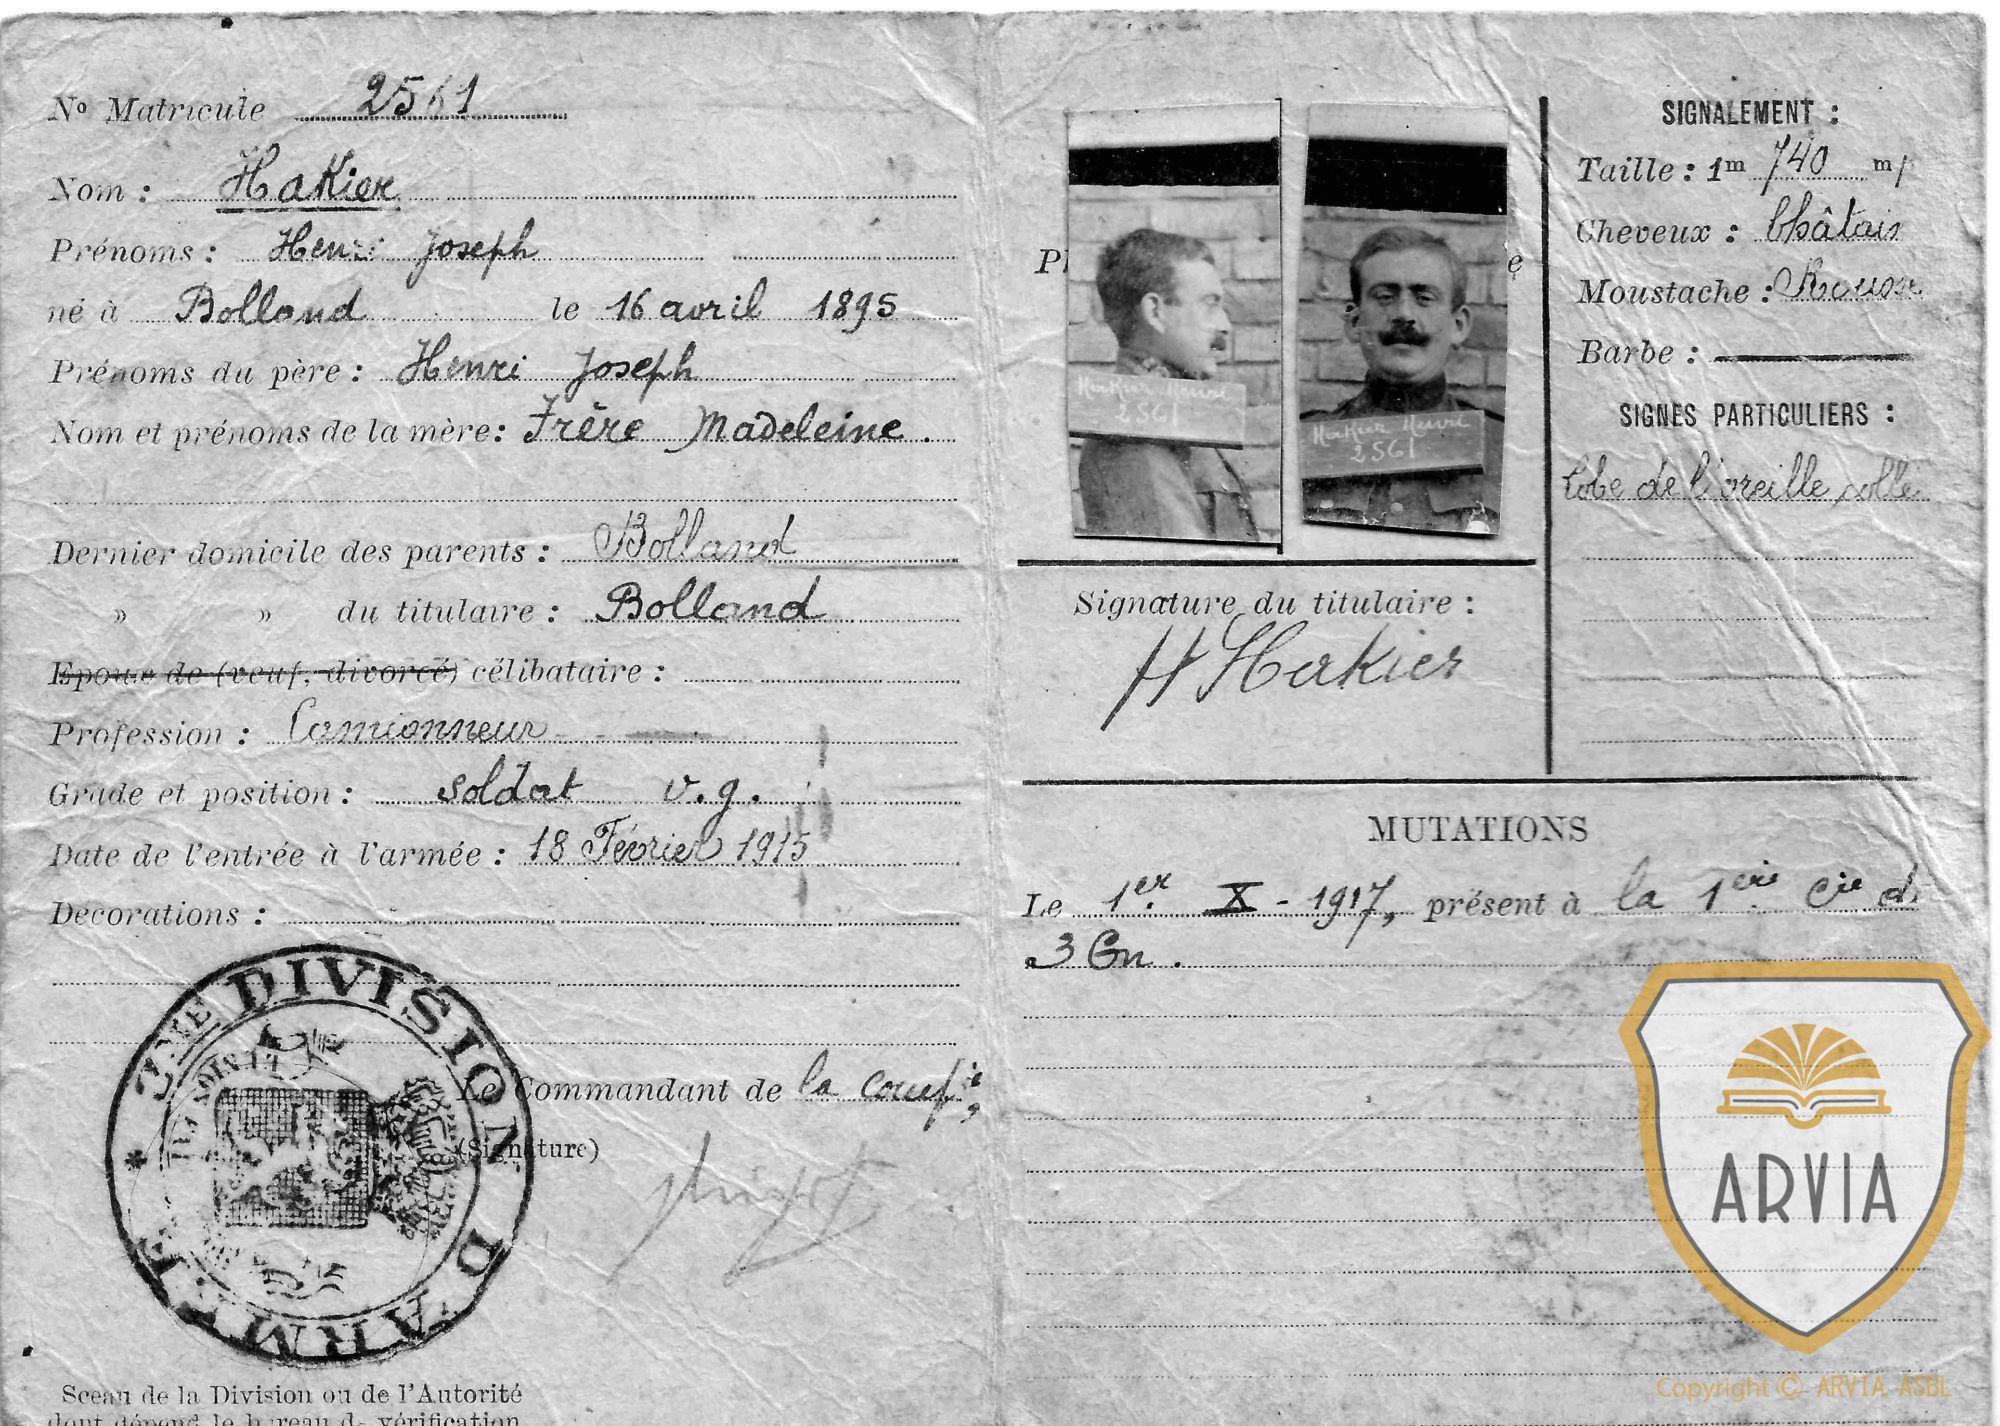 Nº Matricule 2561
Nom : Hakier
Prénoms : Henri Joseph
né à Bolland le 16 avril 1895
Prénoms du père : Henri Joseph
Nom et prénoms de la mère : Frère Madeleine.
Dernier domicile des parents : Bolland
» » du titulaire : Bolland
Epoux de (veuf, divorcé) célibataire :
Profession : Camionneur
Grade et position : soldat v.g.
Date de l'entrée à l'armée : 18 Février 1915
Décorations :
DIVISION D'ARMÉE
Le Commandant de la comp ie
(Signature)
Sceau de la Division ou de l'Autorité
dont dépend le bureau de vérification
Hakier Henri
2561
Hakier Henri
2561
Signature du titulaire :
H Hakier
SIGNALEMENT :
Taille : 1m 740 m/
Cheveux : Châtain
Moustache : Rousse
Barbe :
SIGNES PARTICULIERS :
Lobe de l'oreille collé
MUTATIONS
Le 1er X - 1917, présent à la 1ère Cie d
3 Gn.
ARVIA
Copyright © ARVIA ASBL